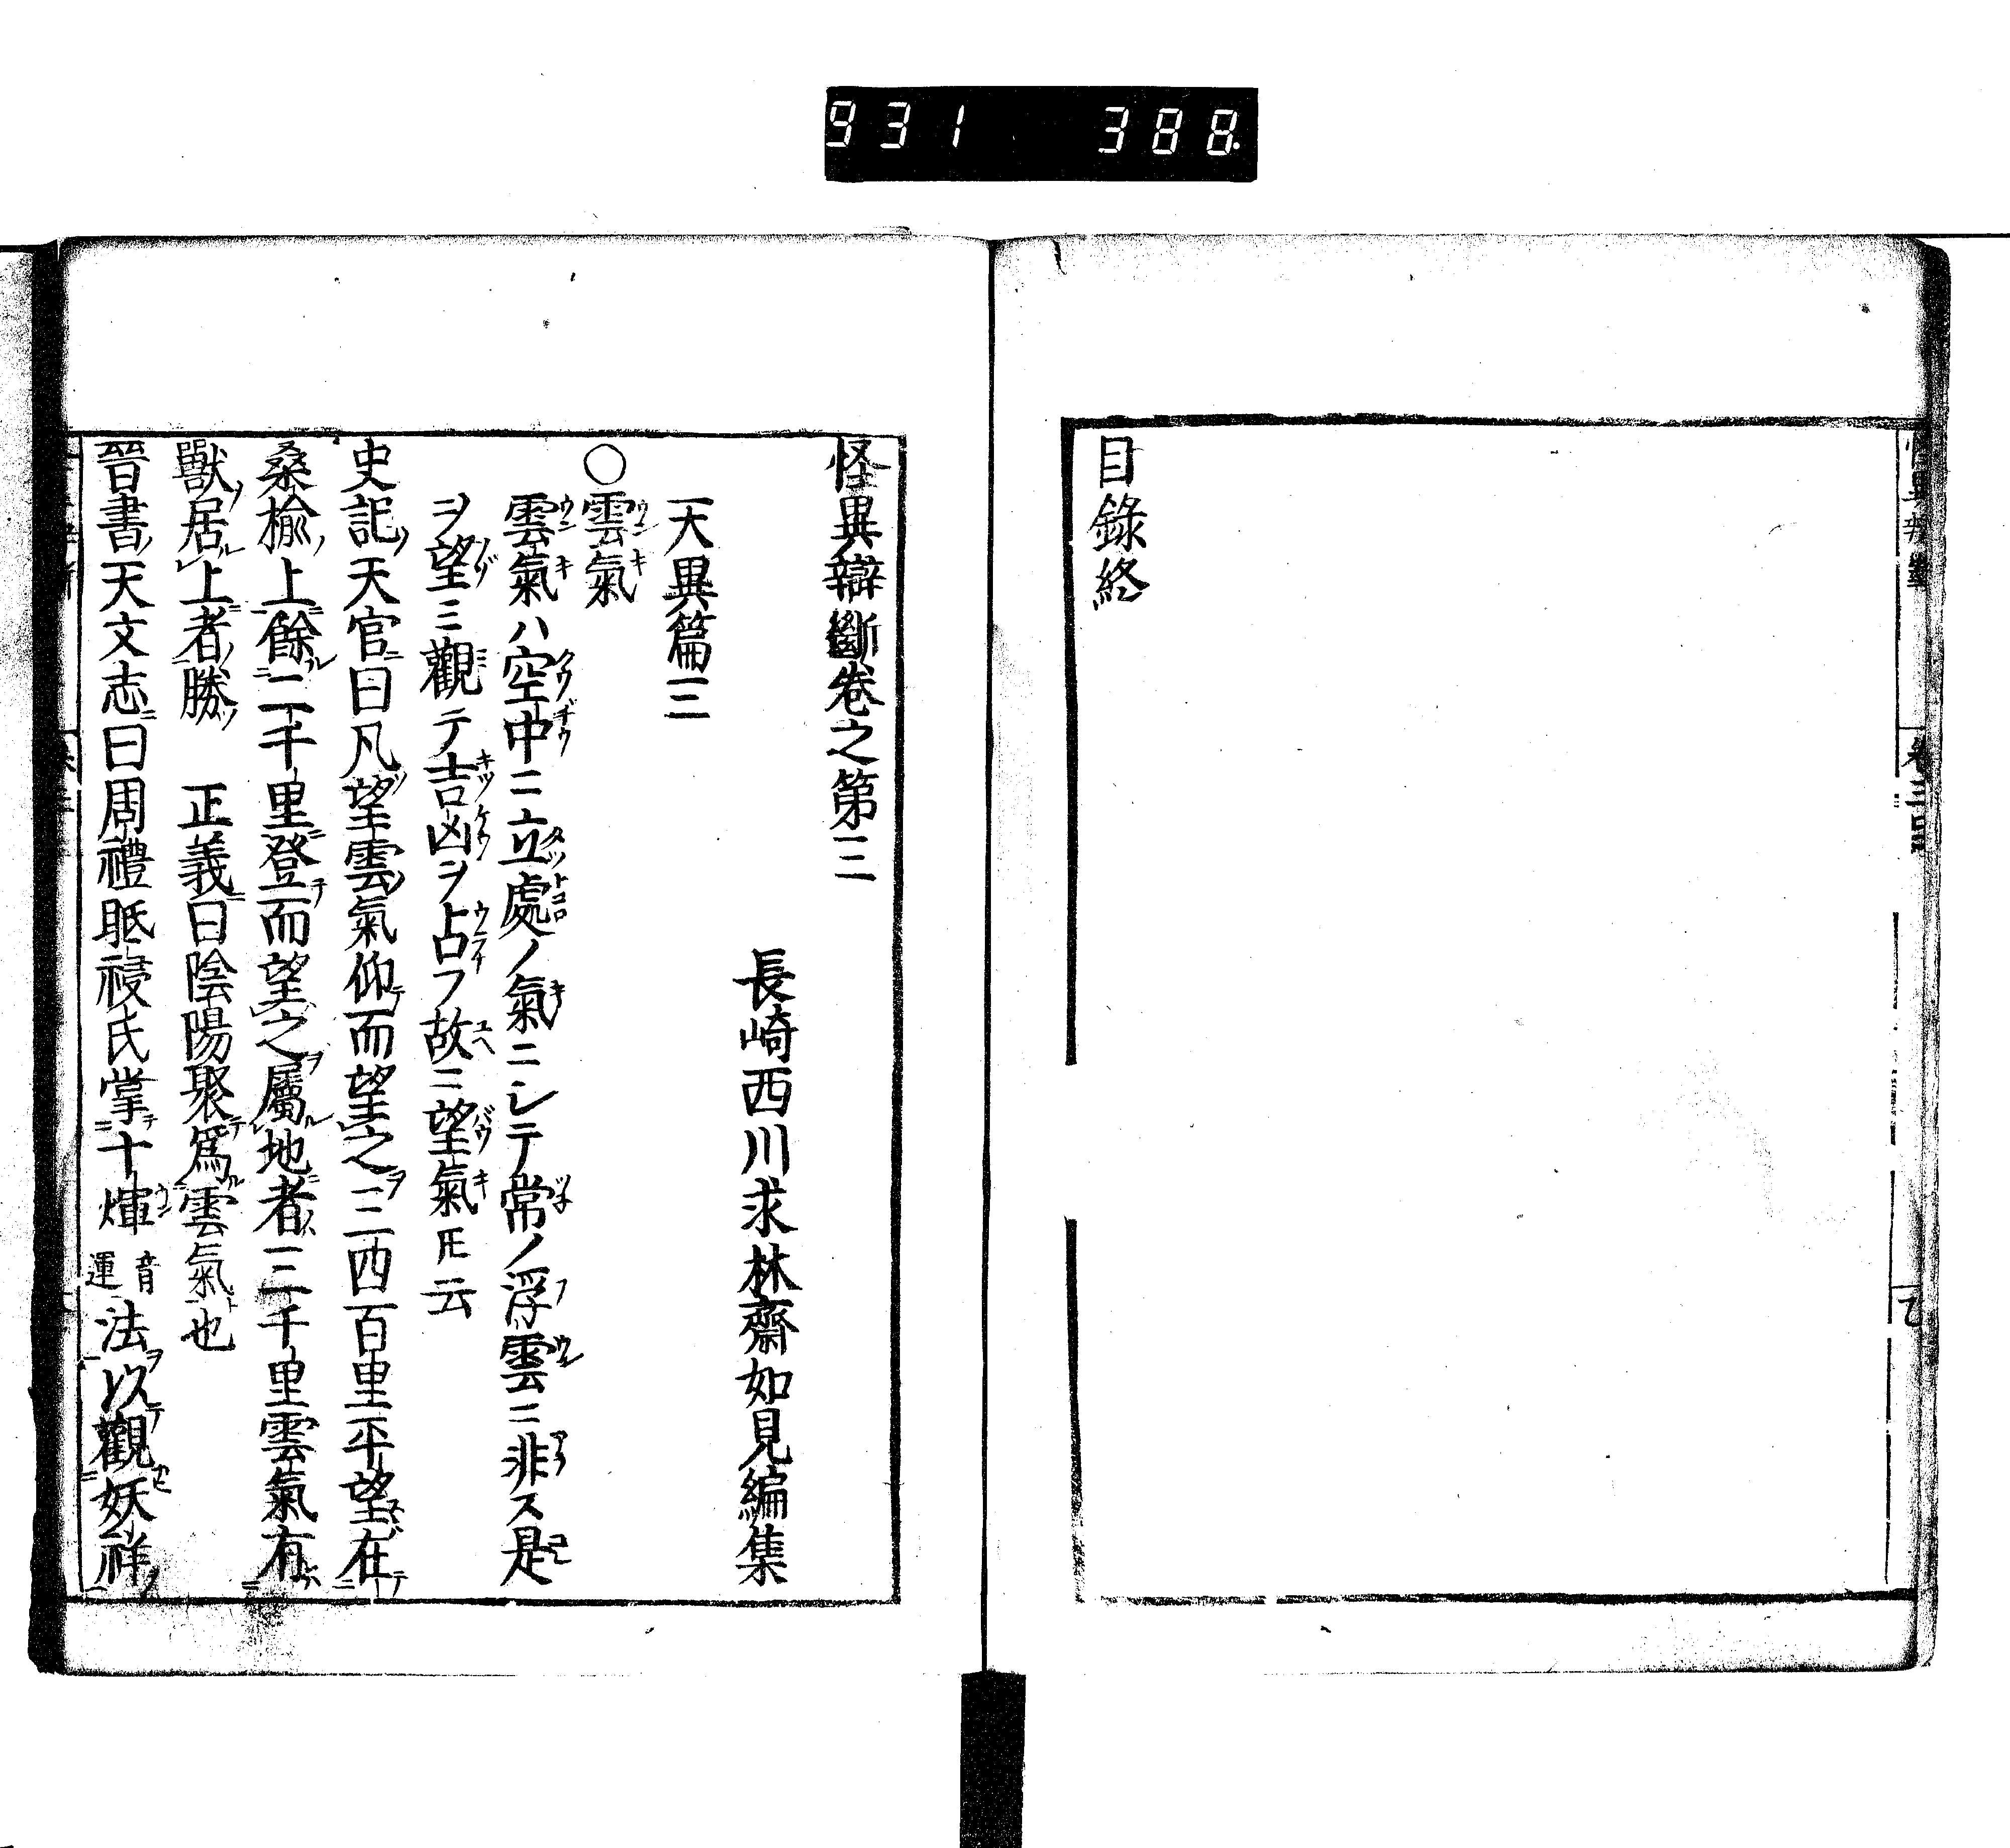 931 388.
目錄終
怪異辯斷卷之第三
長崎西川求林齋如見編集
天異篇三
○雲氣
雲氣ハ空中ニ立處ノ氣ニシテ常ノ浮雲ニ非ス是
ヲ望ミ觀テ吉凶ヲ占フ故ニ望氣𪜈云
史記天官曰凡望雲氣仰而望之三四百里平望在
桑楡上餘二千里登而望之屬地者三千里雲氣有
獸居上者勝　正義曰陰陽聚爲雲氣也
晉書天文志曰周禮眡祲氏掌十煇音運法以觀妖祥